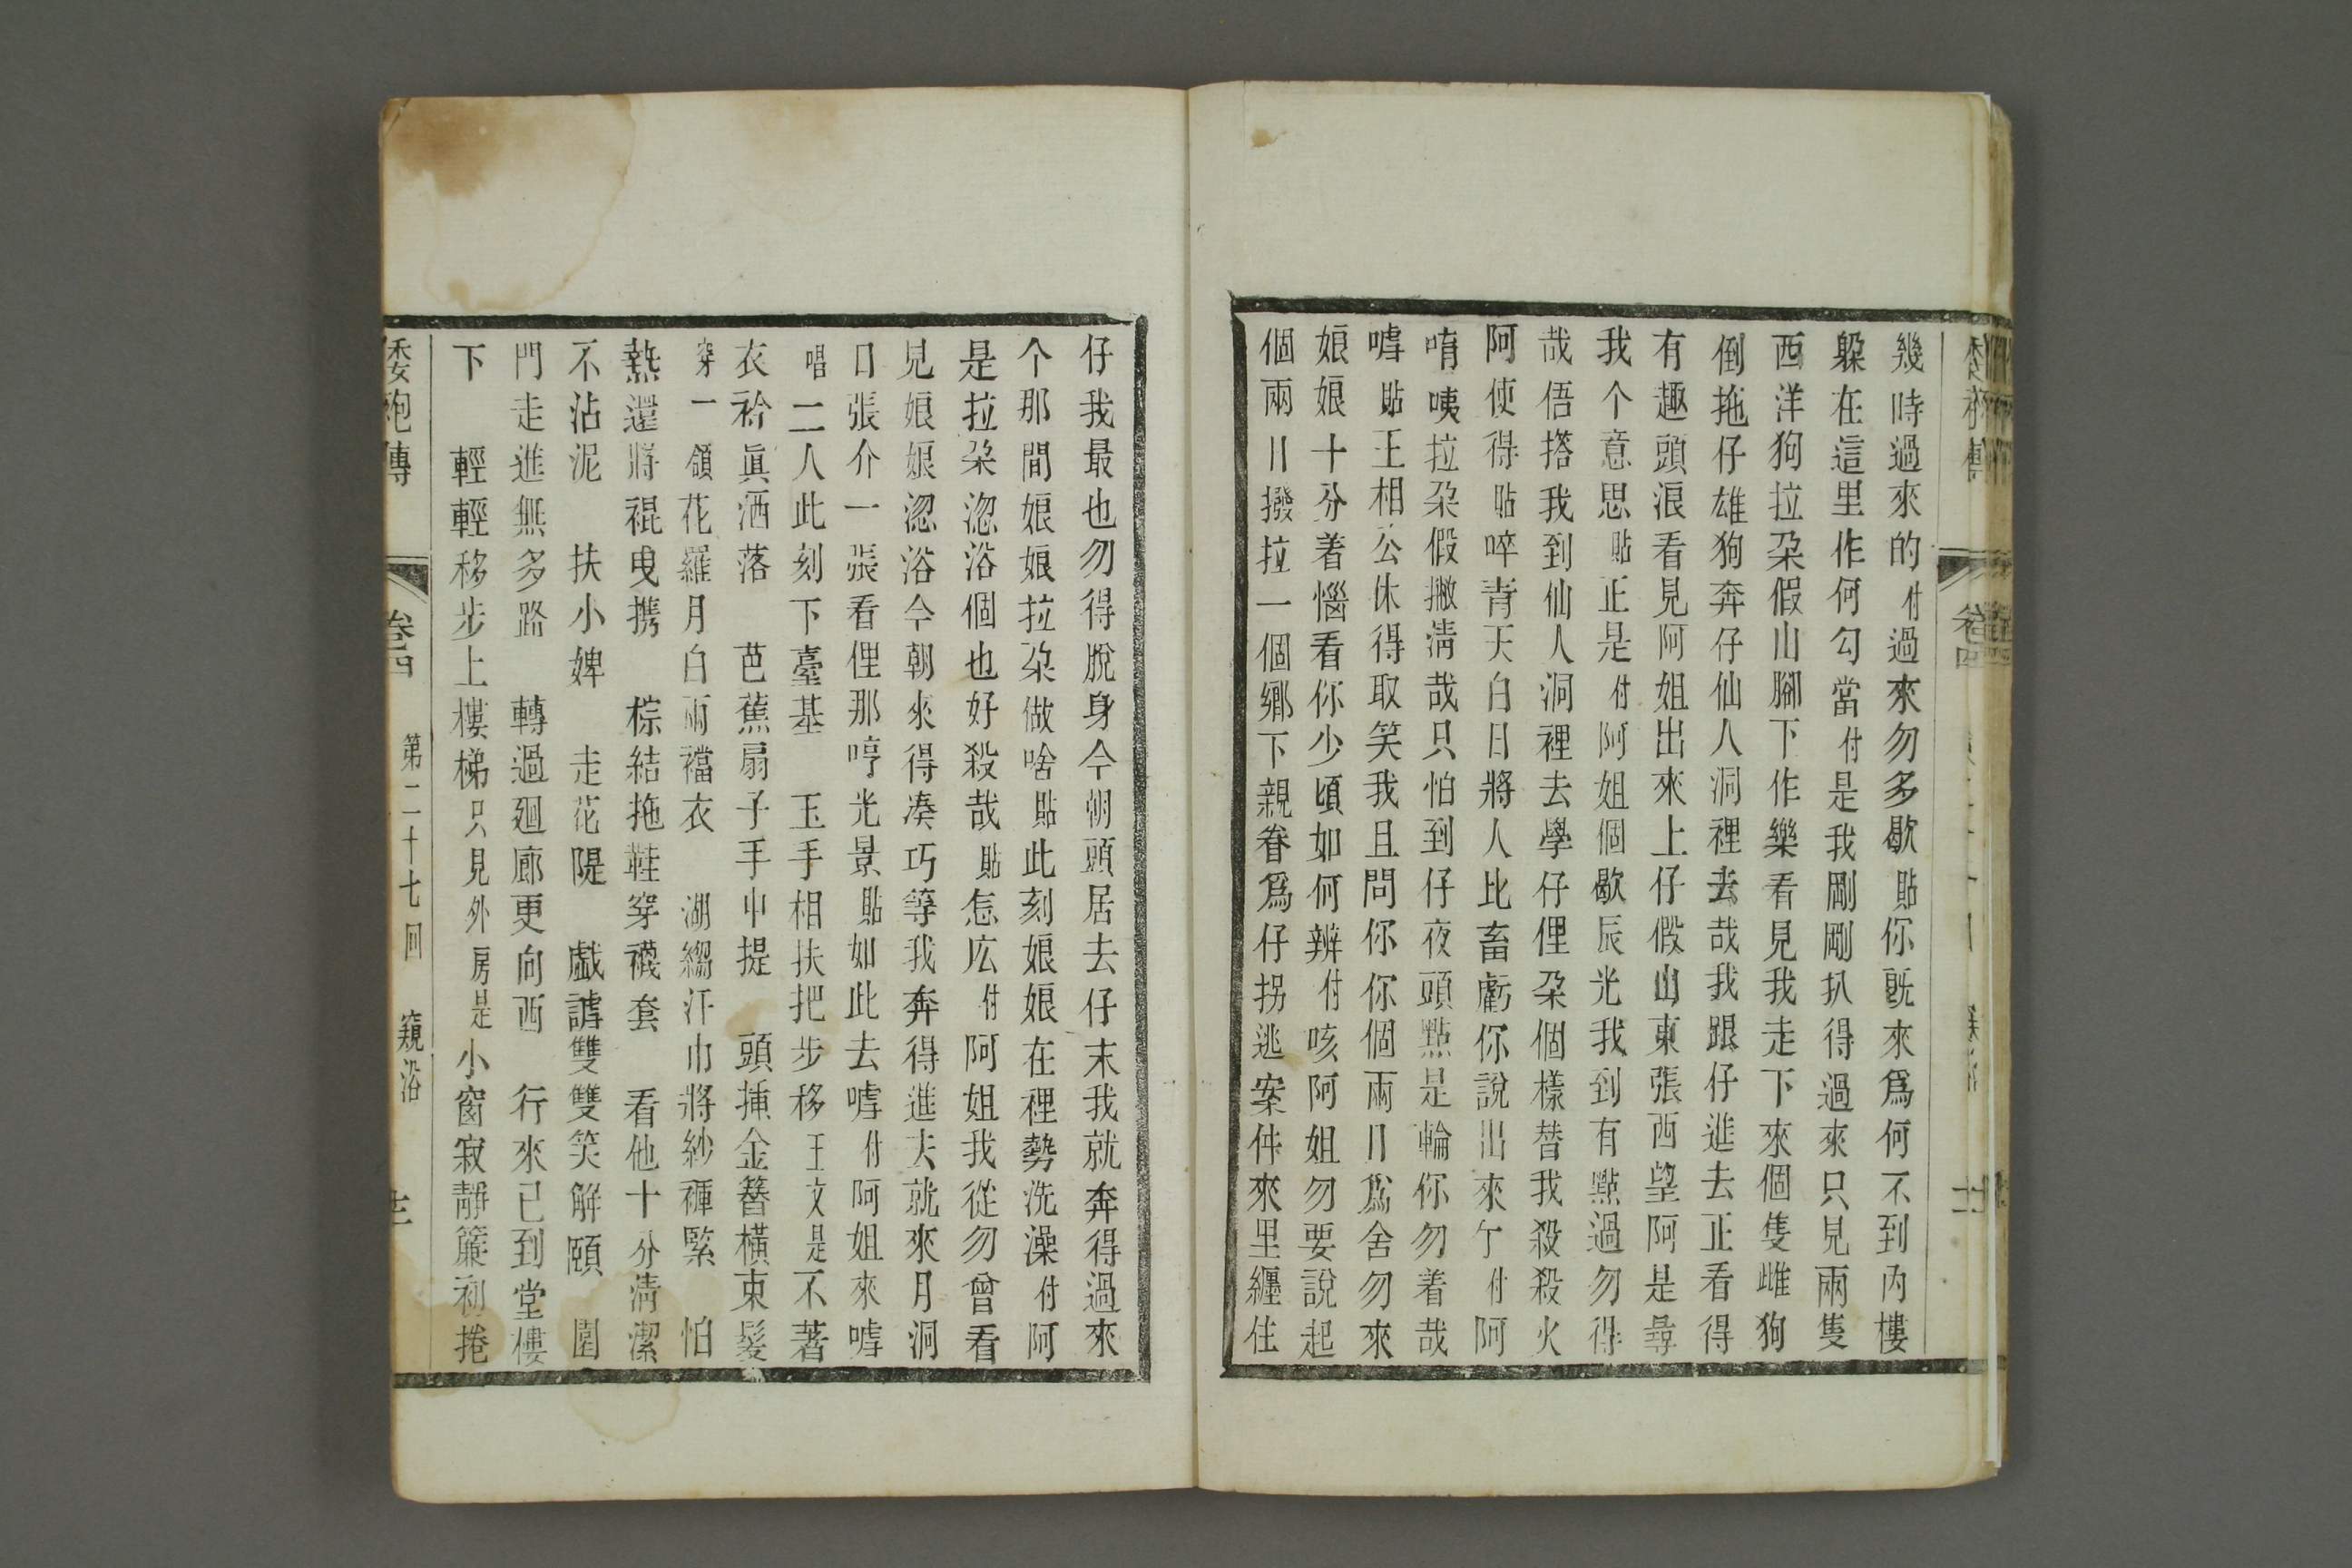 幾時過來的付過來勿多歇貼你旣來爲何不到內樓
躲在這里作何勾當付是我剛剛扒得過來只見兩隻
西洋狗拉朶假山腳下作樂看見我走下來個隻雌狗
倒拖仔雄狗奔仔仙人洞裡去哉我跟仔進去正看得
有趣頭浪看見阿姐出來上仔假山東張西望阿是尋
我个意思貼正是付阿姐個歇辰光我到有點過勿得
哉俉搭我到仙人洞裡去學仔俚朶個樣替我殺殺火
阿使得貼啐青天白日將人比畜虧你說出來乍付阿
唷咦拉朶假撇清哉只怕到仔夜頭點是輪你勿着哉
嘑貼王相公休得取笑我且問你你個兩日爲舍勿來
娘娘十分着惱看你少頃如何辨付咳阿姐勿要說起
個兩日撥拉一個鄉下親眷爲仔拐逃案件來里纏住
仔我最也勿得脫身今朝頭居去仔末我就奔得過來
个那間娘娘拉朶做啥貼此刻娘娘在裡勢洗澡付阿
是拉朶淴浴個也好殺哉貼怎庅付阿姐我從勿曾看
見娘娘淴浴今朝來得凑巧等我奔得進去就來月洞
口張介一張看俚那哼光景貼如此去嘑付阿姐來嘑
唱二人此刻下臺基　玉手相扶把步移王文是不著
衣衿眞洒落　芭蕉扇子手中提　頭揷金簪橫束髮
穿一領花羅月白兩襠衣　湖縐汗巾將紗褲緊　怕
熱還將裩曳攜　棕結拖鞋穿襪套　看他十分清潔
不沾泥　扶小婢　走花隄　戲謔雙雙笑解頤　園
門走進無多路　轉過迴廊更向西　行來已到堂樓
下　輕輕移步上樓梯只見外房是小窗寂靜簾初捲
倭袍傳　卷四　第二十七回　窺浴